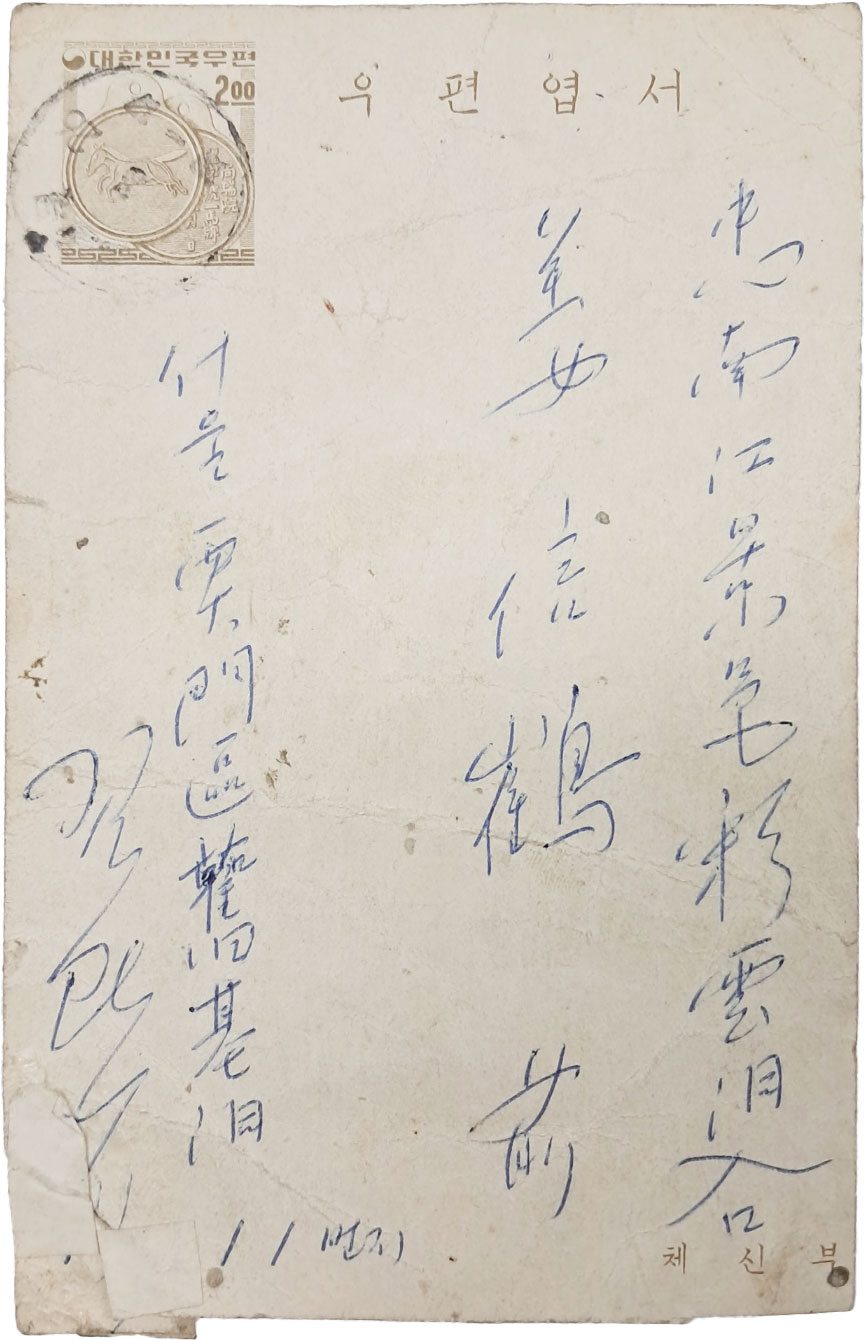 대한민국우편
2.00
우편엽서
忠南江景邑彩雲洞
姜信鶴 前
서울西大門區舊基洞
11번지
체신부